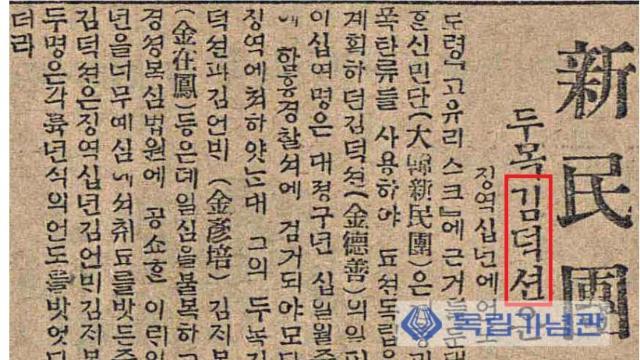 新民團
두목김덕선은
징역십년에언
로령『고유리스크』에근거를둔대
한신민단(大韓新民團)은
폭탄류를 사용하야 됴션독립을
계획하던김덕션(金德善)의일파
이십여명은 대정구년 십일월중
에 함흥경찰셔에 검거되야모다
징역에쳐하얏는대 그의 두목김
덕션과김언배 (金彥培) 김재
(金在鳳)등은뎨일심을불복하고
경성복심법원에 공소한 이래일
년을너무예심에셔취됴를밧든중
김덕션은징역십년김언배김재
두명은각륙년식의언도를밧엇다
더라
독립기념관